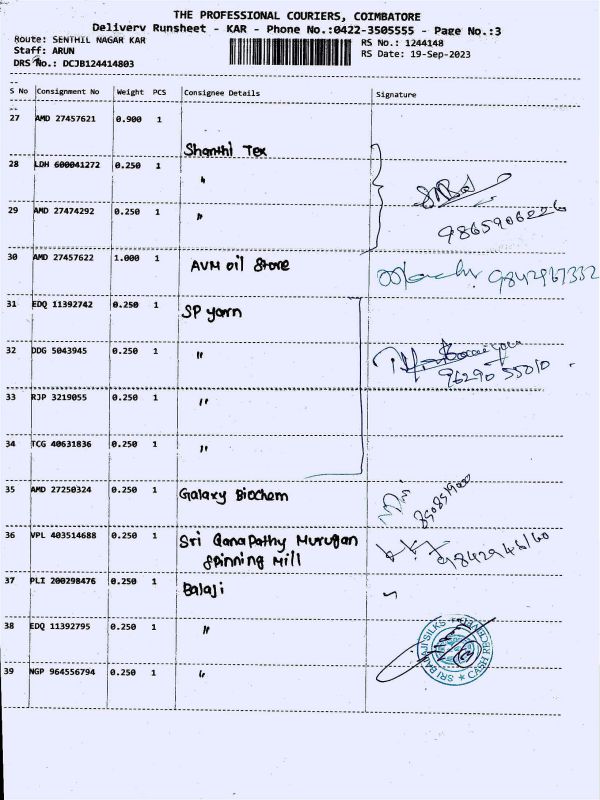 THE PROFESSIONAL COURIERS, COIMBATORE
Delivery Runsheet - KAR - Phone No.:0422-3505555 - Page No.:3
Route: SENTHIL NAGAR KAR
RS No.: 1244148
Staff: ARUN
RS Date: 19-Sep-2023
DRS No.: DCJB124414803
S No Consignment No Weight PCS Consignee Details Signature
27 AMD 27457621 0.900 1 Shanthi Tex
28 LDH 600041272 0.250 1 "
29 AMD 27474292 0.250 1 " 9865906226
30 AMD 27457622 1.000 1 AVM oil Store 9842967332
31 EDQ 11392742 0.250 1 SP yarn
32 DDG 5043945 0.250 1 " 96290 55010
33 RJP 3219055 0.250 1 "
34 TCG 40631836 0.250 1 "
35 AMD 27250324 0.250 1 Galaxy Biochem
36 VPL 403514688 0.250 1 Sri Ganapathy Murugan
Spinning Mill
37 PLI 200298476 0.250 1 Balaji "
38 EDQ 11392795 0.250 1 "
39 NGP 964556794 0.250 1 "
SRI BALAJI SILKS ★ CASH RECEIVED ★